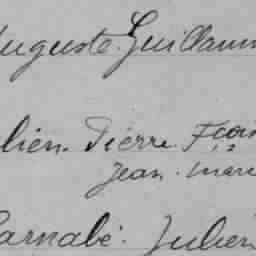 Auguste. Guillaum
lien. Pierre. Fçois
Jean. Marie
Barnabé. Julien